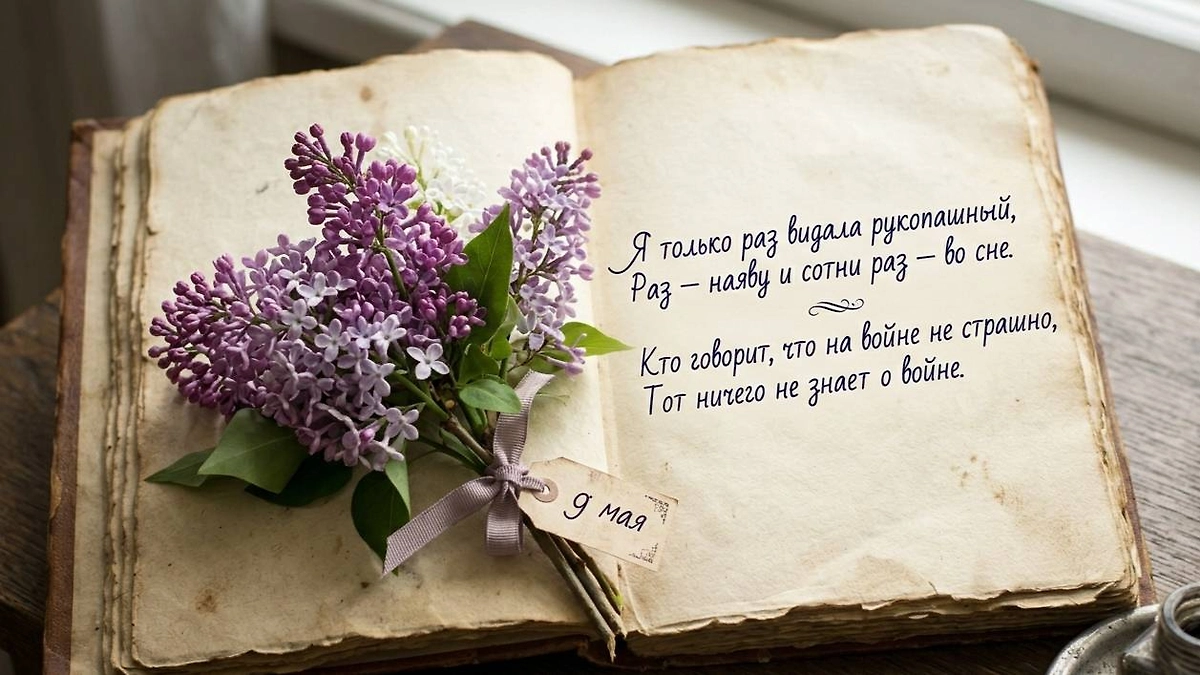 Я только раз видала рукопашный,
Раз – наяву и сотни раз – во сне.
Кто говорит, что на войне не страшно,
Тот ничего не знает о войне.
9 мая